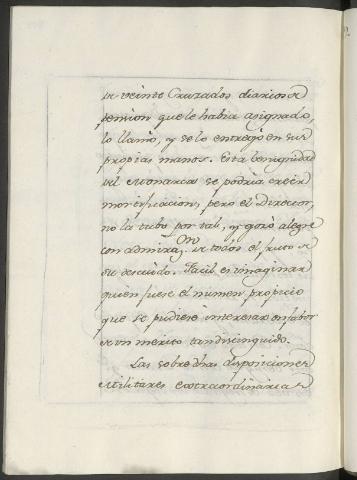 de veinte Cruzados diarios de
pension que le habia asignado,
lo llamó, y se lo entregó en sus
propias manos. Esta benignidad
del Monarca se podria creer
mortificacion, pero el Director,
no la tubo por tal, y gozó alegre
con admira.on de todos el fruto de
su descuido. Facil es imaginar
quien fuese el numen propicio
que se pudiese interesar en fabor
de un merito tan distinguido.
Las sobredhas disposiciones
Militares extraordinarias